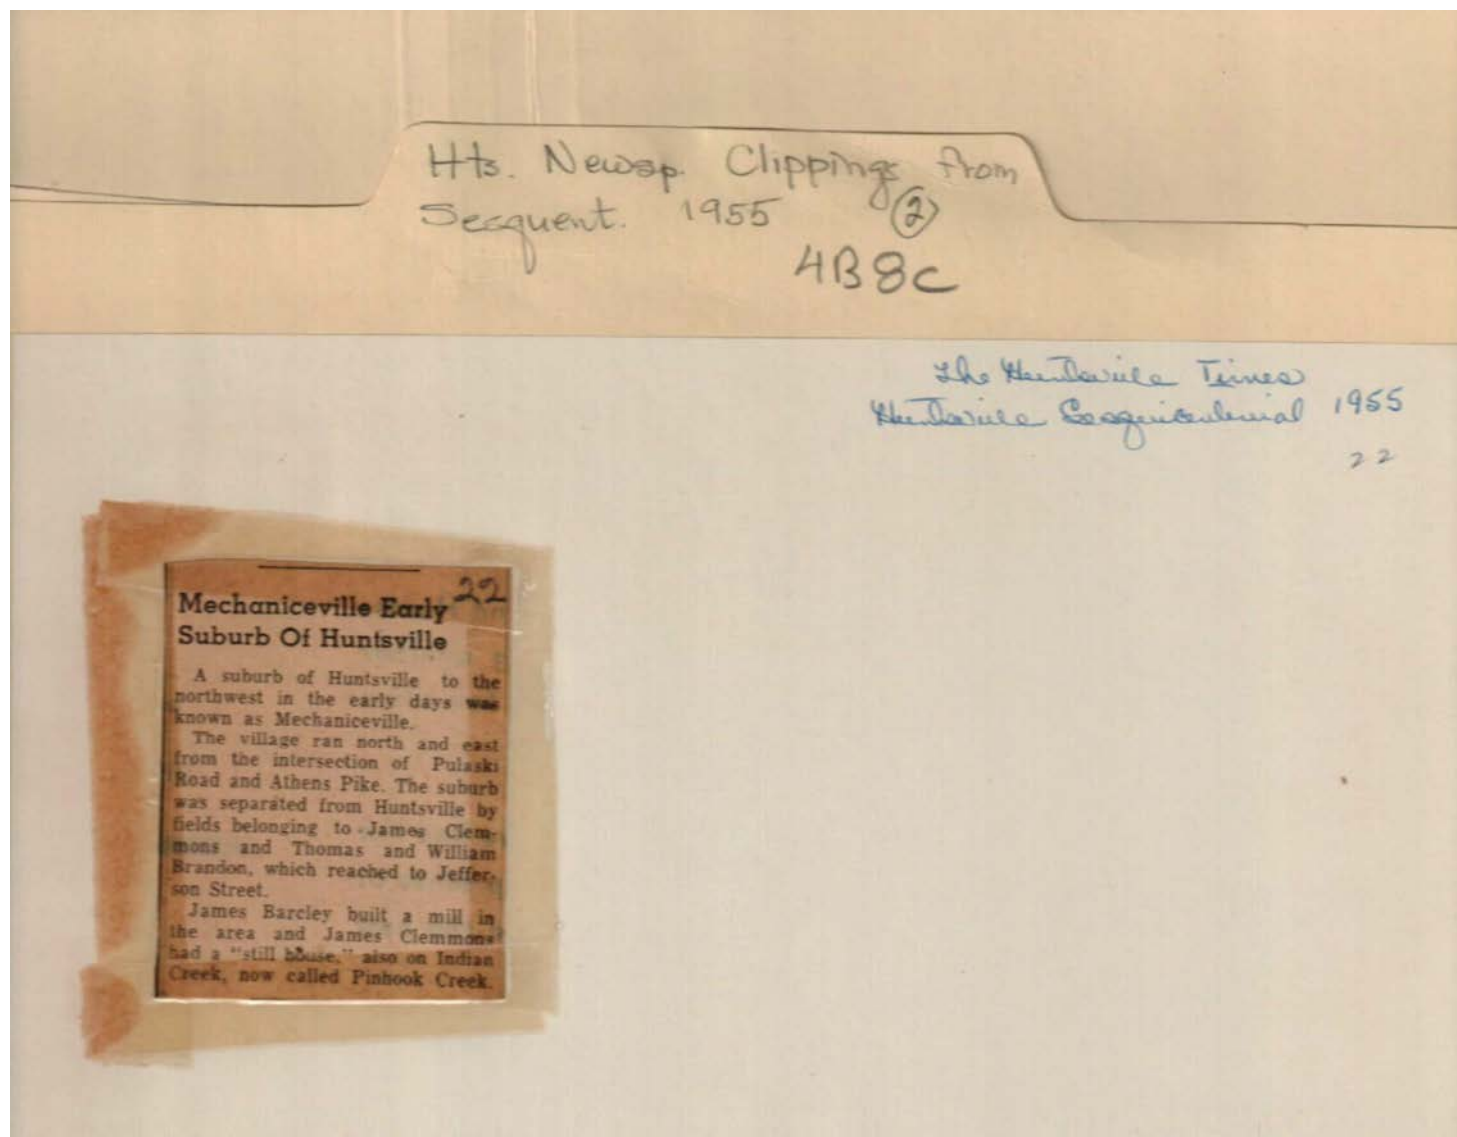 Hts. Newsp. Clippings from
Sesquent. 1955 2
4B8C
The Huntsville Times
Huntsville Sesquicentennial 1955
22
22
Mechaniceville Early
Suburb Of Huntsville
A suburb of Huntsville to the
northwest in the early days was
known as Mechaniceville.
The village ran north and east
from the intersection of Pulaski
Road and Athens Pike. The suburb
was separated from Huntsville by
fields belonging to James Clem-
mons and Thomas and William
Brandon, which reached to Jeffer-
son Street.
James Barcley built a mill in
the area and James Clemmons
had a "still house," also on Indian
Creek, now called Pinhook Creek.